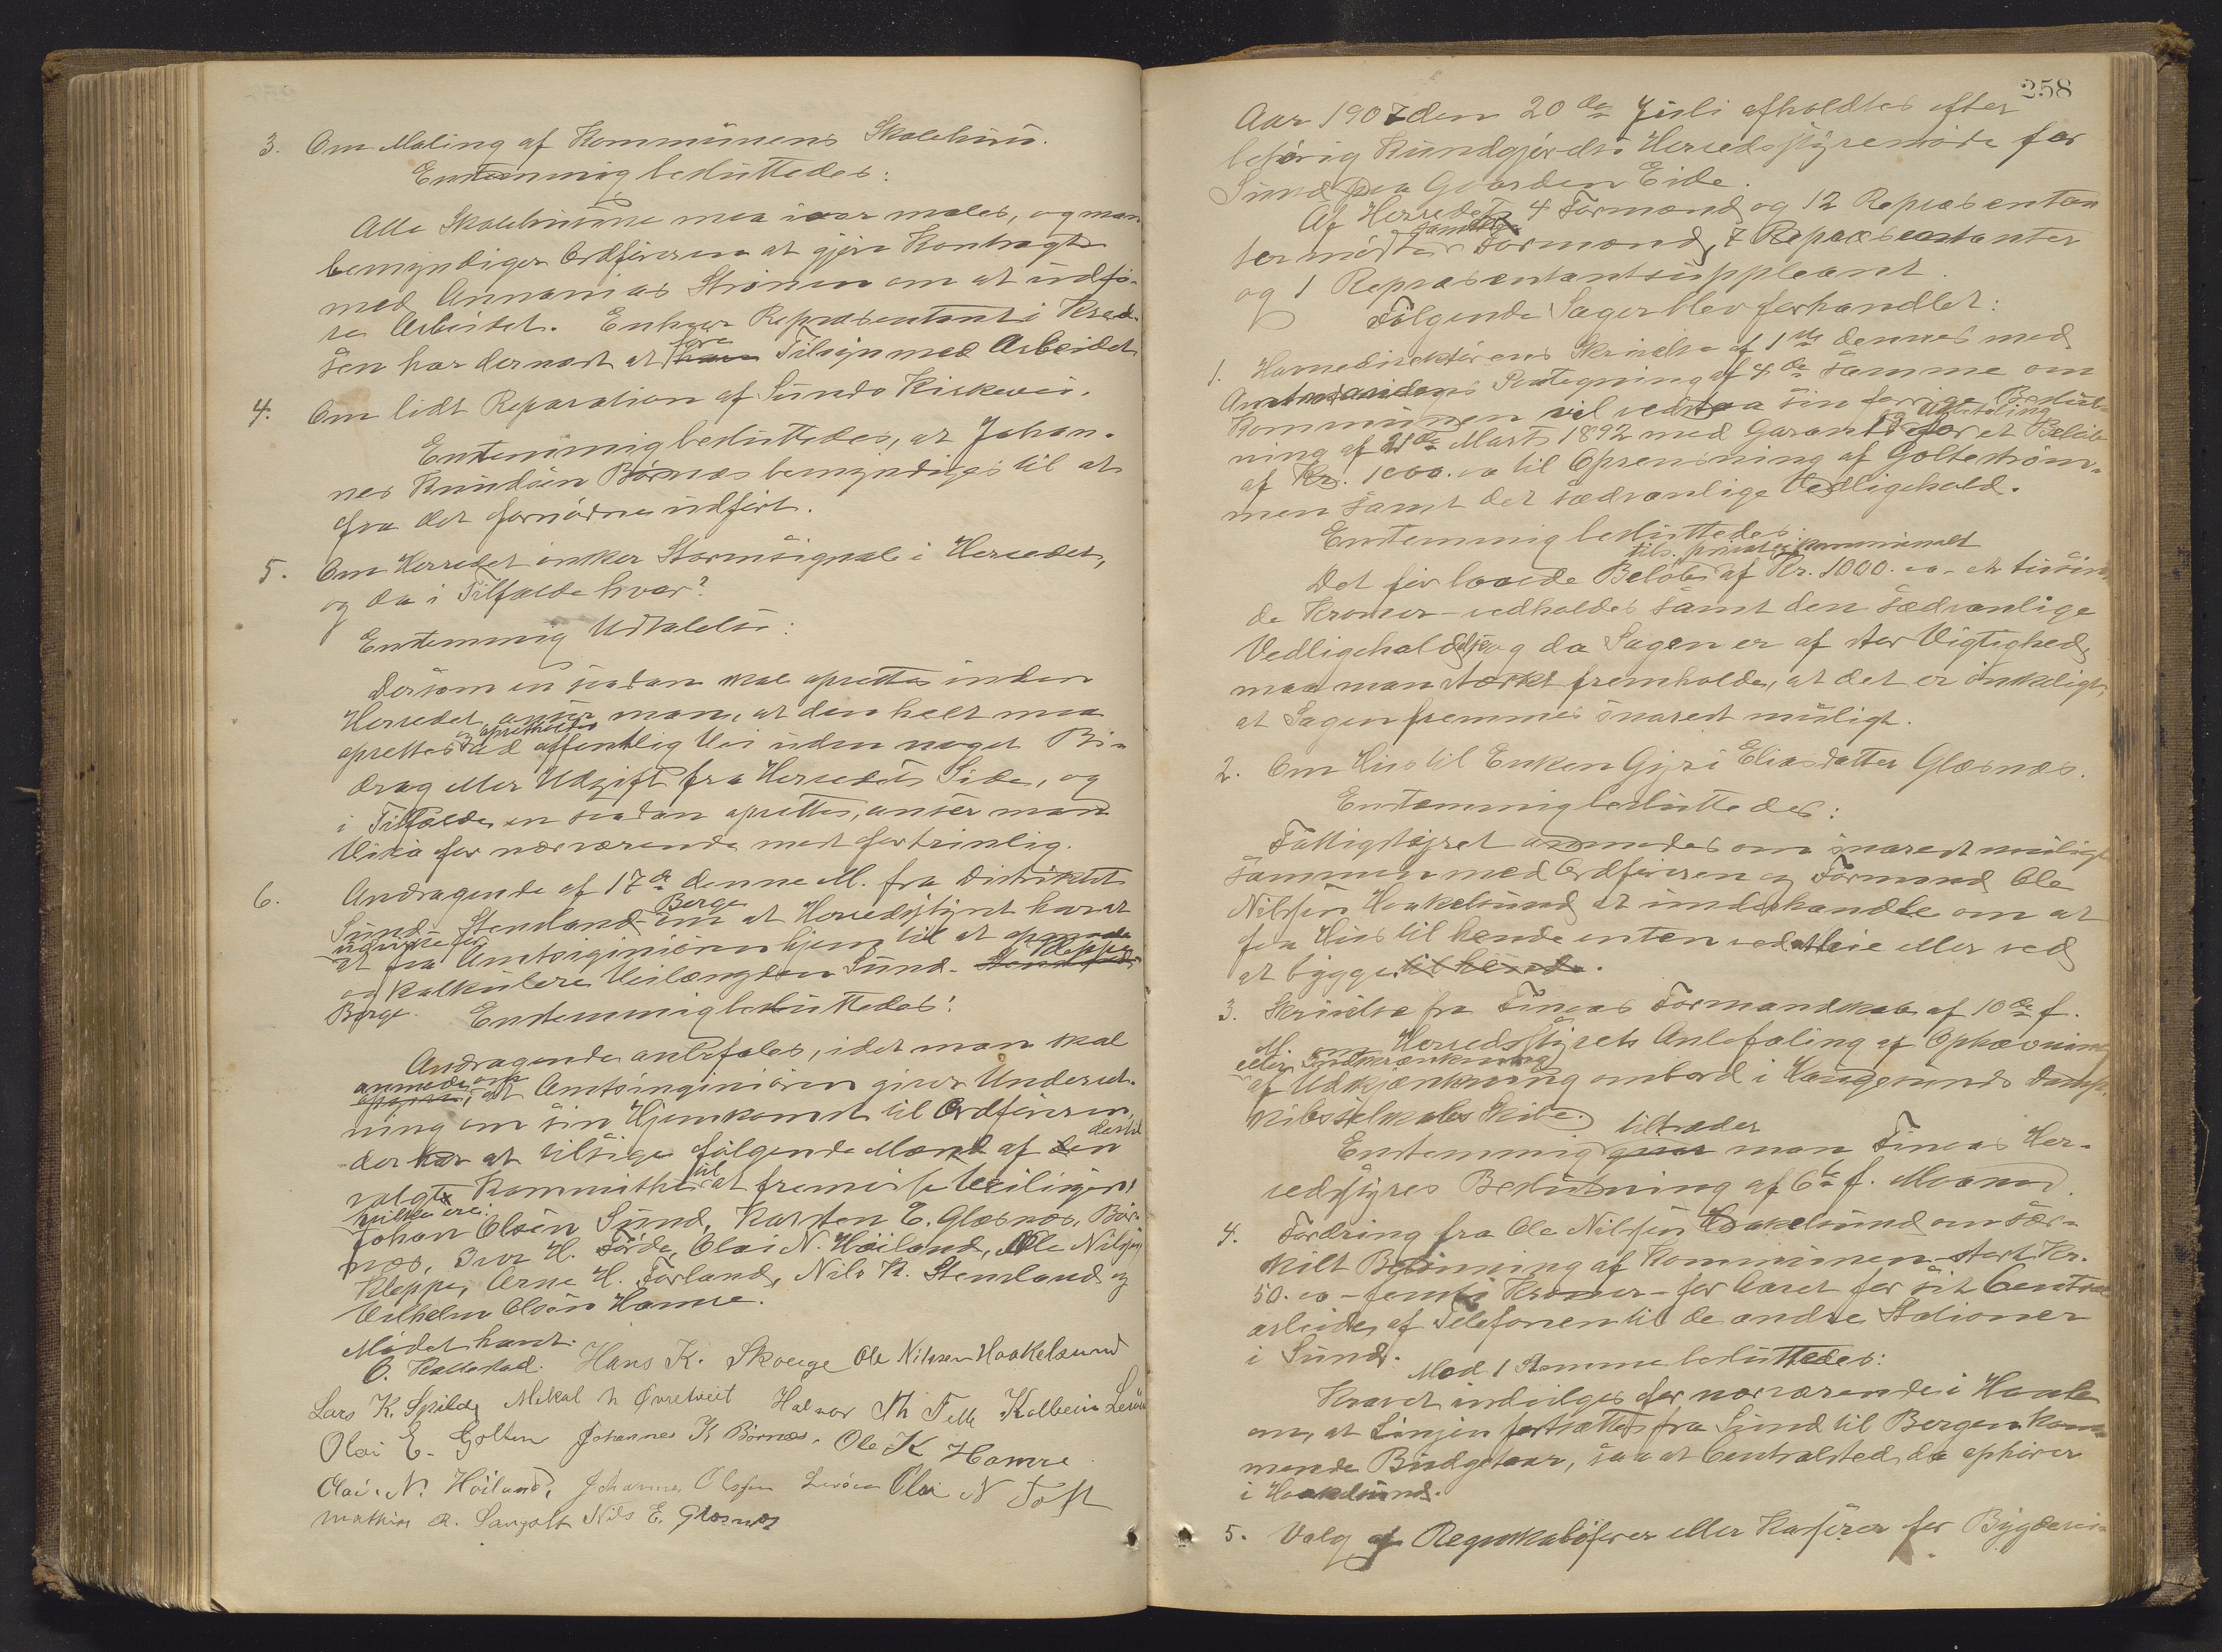 3. Om Maling af Kommunens Skolehus.
Enstemmig besluttedes:
Alle Skolehusene maa iaar males, og man
bemyndiger Ordføreren at gjøre Kontragt
med Annanias Strømen om at udfø-
re Arbeidet. Enhver Repræsentant i Kred-
sen har dernæst at føre Tilsyn med Arbeidet
4. Om lidt Reparation af Sunds Kirkevei.
Enstemmig besluttedes, at Johan-
nes Knudsen Børnæs bemyndiges til at
faa det fornødne udført.
5. Om Herredet ønsker Stormsignal i Herredet,
og da i Tilfælde hvor?
Enstemmig Udtalelse:
Dersom en saadan skal oprettes inden
Herredet, anser man, at den helst maa
oprettes og opretholdes ved offentlig Vei uden noget Bi-
drag eller Udgift fra Herredets Side, og
i Tilfælde en saadan oprettes, anser man
for nærværende mest fortrinlig.
6. Andragende af 17de denne M. fra Distriktet
Sund Stenland Berge om at Herredstyret har at
udvirke for at faa Amtsiginiøren hjem til at opmaale
og kalkulere Veilængden Sund - Kleppe
Berge. Enstemmig besluttedes:
Andragende anbefales, idet man skal
anmode om, at Amtsinginiøren giver Underret-
ning om sin Hjemkomst til Ordføreren,
der har at tilsige følgende Mænd af den dertil
valgte Kommithe til at fremvise Veilinjen,
hvilke ere:
Johan Olsen Sund, Karsten E. Glæsnæs, Bør-
næs, Iver H. Førde, Olai N. Høiland, Ole Nilsen
Kleppe, Arne H. Forland, Nils K. Stenland og
Vilhelm Olsen Hamre.
Mødet hævet.
O. Kallestad. Hans K. Skoege Ole Nilssen Haakelsund
Lars K. Spilde Mikal N Øvretveit Halvor Th Telle Kolbein
Olai E. Golten Johannes K Børnæs. Ole K Hamre.
Olai N. Høiland, Johannes Olsen Lerøen Olai N Toft
Mathias R. Sangolt Nils E. Glæsnæs
258
Aar 1907 den 20de Juli afholdtes efter
behørig Kundgjørelse Herredsstyremøde for
Sund paa Gaarden Eide.
Af Herredets 4 Formænd og 12 Repræsentan
ter mødte samtlige Formænd, 7 Repræsentanter
og 1 Repræsentantsuppleant.
Følgende Sager blev forhandlet:
1. Havnedirektørens Skrivelse af 1ste dennes med
Amtmandens Paategning af 4de samme om
Kommunen vil vedstaa sin forrige Beslut-
ning af 21de Marts 1892 med Garanti for og Udbetaling et Beløb
af Kr. 1000.00 til Oprensning af Goltestrøm-
men samt det sædvanlige Vedligehold.
Enstemmig besluttedes:
Det før lovede Beløb dels privat og kommunalt af Kr. 1000.00 - et tusin-
de Kroner - vedholdes samt den sædvanlige
Vedligeholdelse og da Sagen er af stor Vigtighed,
maa man stærkt fremholde, at det er ønskeligt,
at Sagen fremmes snarest muligt.
2. Om Hus til Enken Gyri Eliasdatter Glæsnæs.
Enstemmig besluttedes:
Fattigstyret anmodes om snarest muligt
sammen med Ordføreren og Formand Ole
Nilssen Haakelsund at underhandle om at
faa Hus til hende enten ved at leie eller ved
at bygge til hende.
3. Skrivelse fra Finaas Formandskab af 10de f.
M. om Herredsstyrets Anbefaling af Ophævning
eller Indskrænkning
af Udskjænkning ombord i Haugesunds Damp-
skibsselskabs Skibe.
Enstemmig tiltræder man Finaas Her-
redsstyres Beslutning af 6te f. Maaned.
4. Fordring fra Ole Nilssen Haakelsund om sær-
skilt Betaling af Kommunen stort Kr.
50.00 - femti Kroner - for Aaret for sit Central
arbeide af Telefonen til de andre Stationer
i Sund.
Mod 1 Stemme besluttedes:
Kravet indvilges for nærværende i Haab
om, at Linjen fortsættes fra Sund til Bergen kom-
mende Budgetaar, saa at Centralsted da ophører
i Haakelsund.
5. Valg af Regnskabsfører eller Kasserer for Bygdevei-